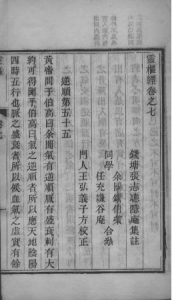 靈樞經卷之七
錢塘張志聰隱庵集註
余國
同學 合參
任充谷庵
門人王弘義子方校正
逆順第五十五
黃帝問于伯高曰余聞氣有逆順脉有盛衰刺有大
約可得聞乎伯高曰氣之逆順者所以應天地陰陽
四時五行也脉之盛衰者所以候血氣之虛實有餘